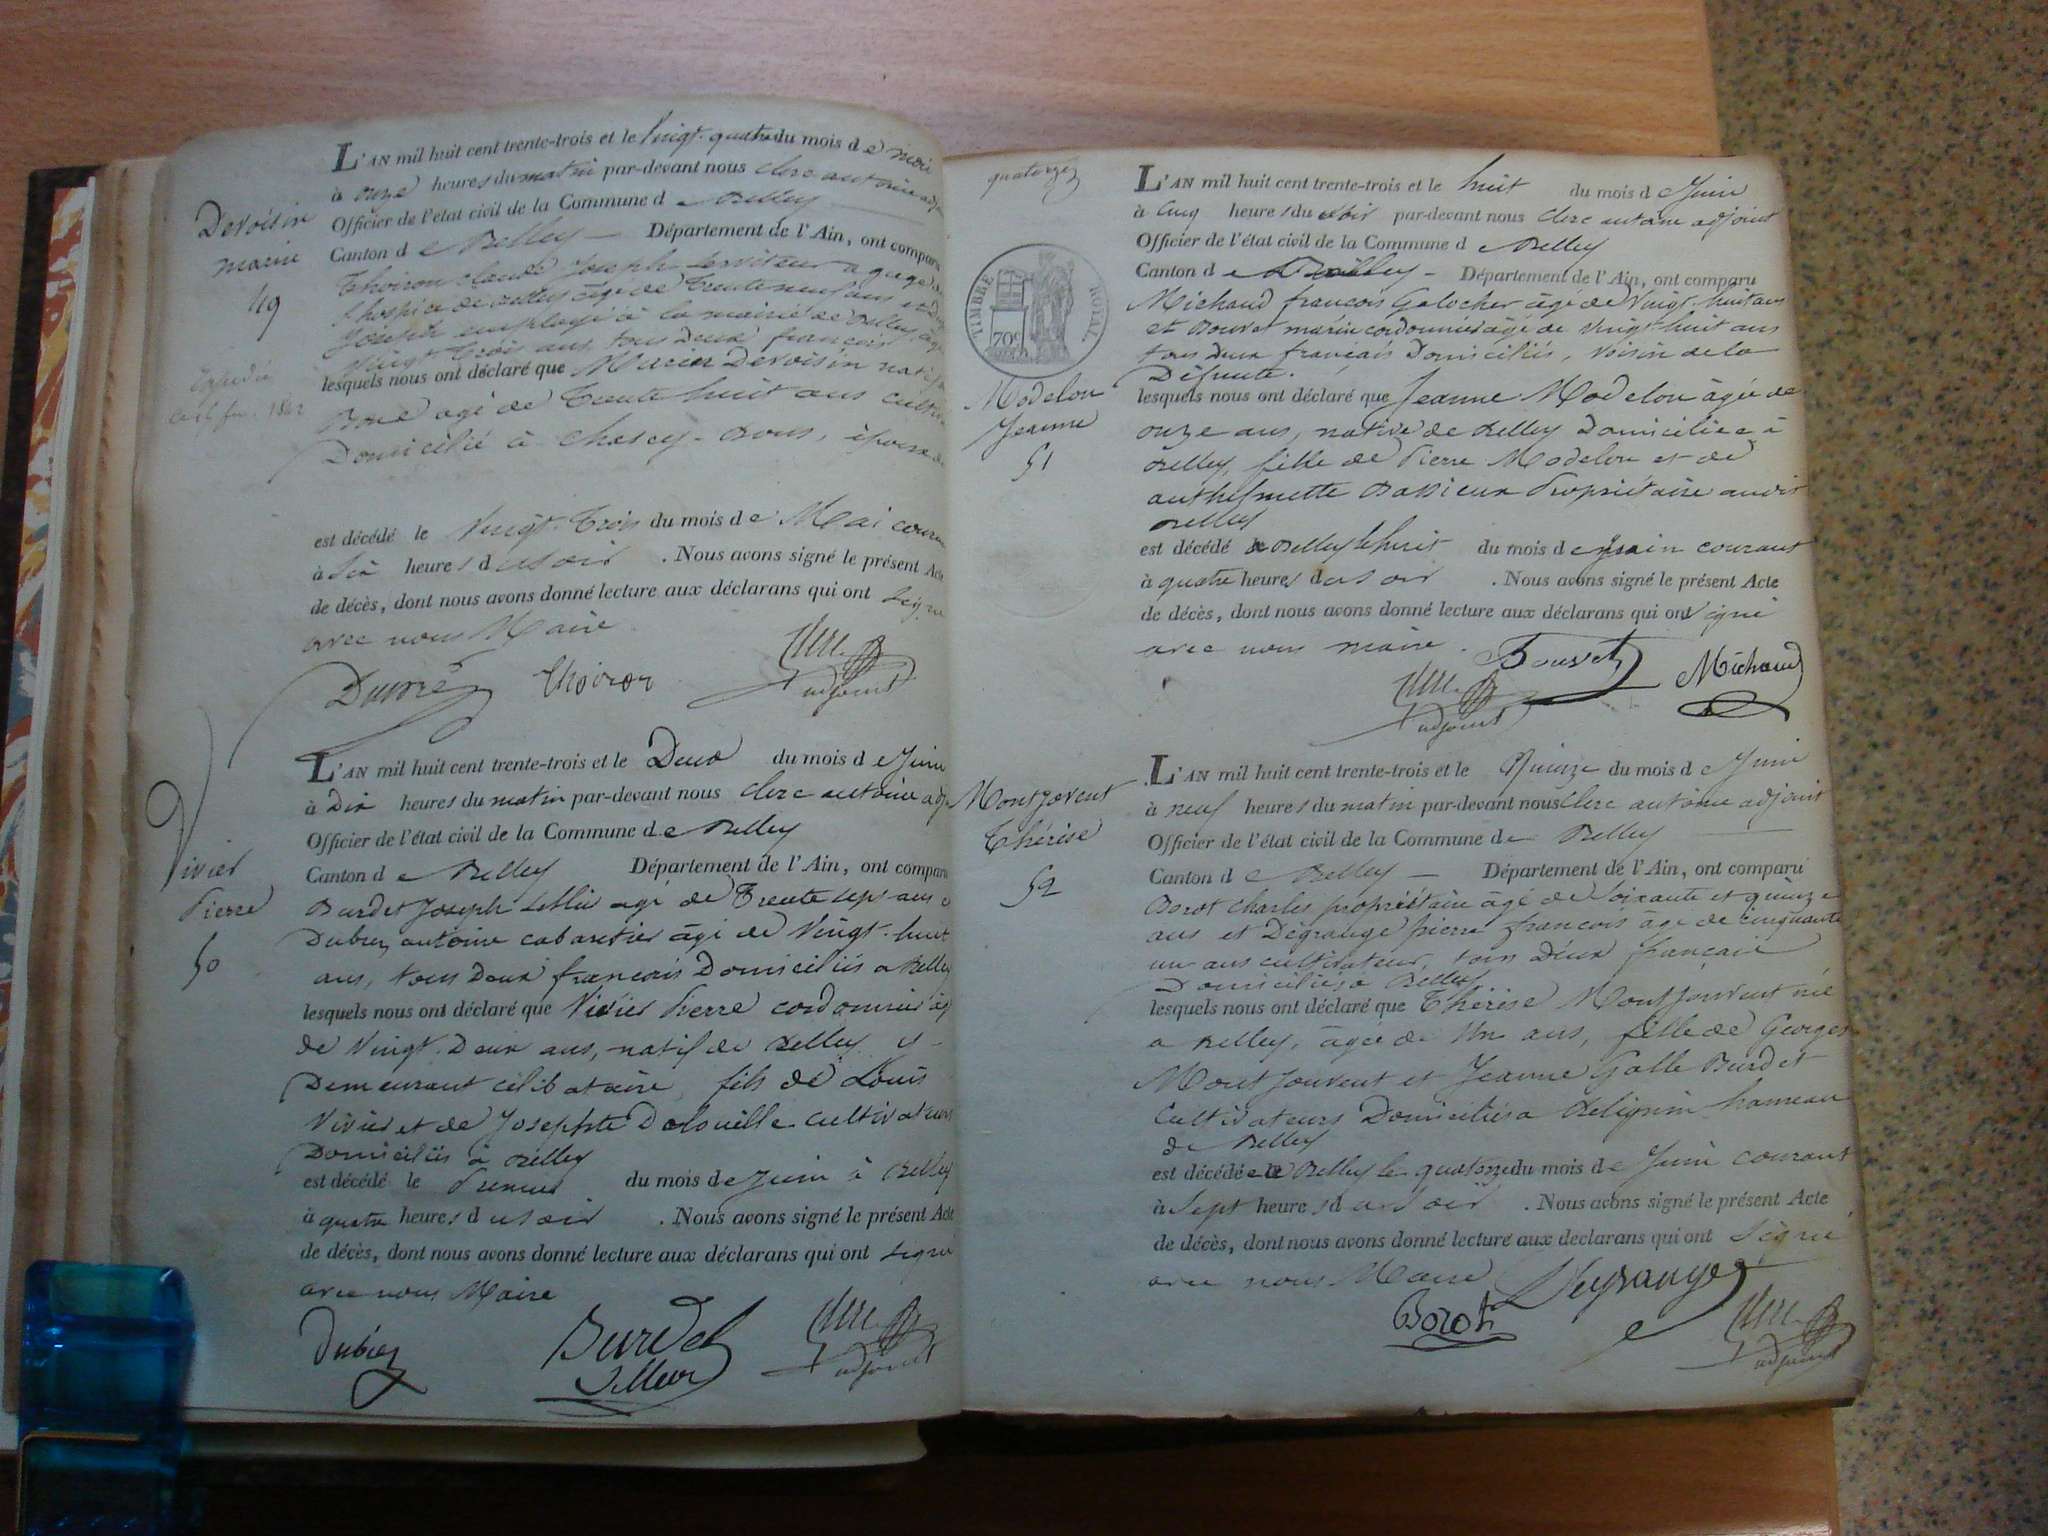 L'AN mil huit cent trente-trois et le Vingt-quatre du mois de mai
à onze heures du matin par-devant nous clerc antoine adj
Officier de l'état civil de la Commune de Belley
Canton de Belley — Département de l'Ain, ont comparu
Thoiron claude Joseph Serviteur a gage de
l'hospice de Belley âgé de Trente neuf ans et
Joseph employé à la mairie de Belley âgé
Vingt trois ans, tous Deux français
lesquels nous ont déclaré que Devoisin
âgé de Trente huit ans
Domicilié à Chasey-Bons, épouse de
est décédé le Vingt-Trois du mois de Mai
à Six heures du soir . Nous avons signé le présent Acte
de décès, dont nous avons donné lecture aux déclarans qui ont Signé
avec nous Maire
Thoiron
adjoint
Devoisin
marie
49
L'AN mil huit cent trente-trois et le Deux du mois de Juin
à Dix heures du matin par-devant nous clerc antoine adj
Officier de l'état civil de la Commune de Belley
Canton de Belley Département de l'Ain, ont comparu
Burdet Joseph Sellier âgé de Trente sept ans
Dubiez antoine cabaretier âgé de Vingt-huit
ans, tous Deux français Domiciliés a Belley
lesquels nous ont déclaré que Vivier Pierre cordonnier
de Vingt-Deux ans, natif de Belley y
Demeurant célibataire, fils de Louis
Vivier et de Josephte cultivateurs
Domiciliés à Belley
est décédé le Premier du mois de Juin à Belley
à quatre heures du soir . Nous avons signé le présent Acte
de décès, dont nous avons donné lecture aux déclarans qui ont Signé
avec nous Maire
Dubiez Burdet
Sellier
adjoint
Vivier
Pierre
50
quatorze
TIMBRE ROYAL
70c
L'AN mil huit cent trente-trois et le huit du mois de Juin
à Cinq heures du soir par-devant nous clerc antoine adjoint
Officier de l'état civil de la Commune de Belley
Canton de Belley — Département de l'Ain, ont comparu
Michaud françois Galocher âgé de Vingt-huit ans
et Bouvet marin cordonnier âgé de Vingt huit ans
tous deux français Domiciliés, Voisin de la
Défunte.
lesquels nous ont déclaré que Jeanne Modelon âgée de
onze ans, native de Belley Domiciliée à
Belley, fille de Pierre Modelon et de
anthelmette Propriétaire
Belley
est décédé a Belley le huit du mois de Juin courant
à quatre heures du soir . Nous avons signé le présent Acte
de décès, dont nous avons donné lecture aux déclarans qui ont signé
avec nous maire.
Bouvet Michaud
adjoint
Modelon
Jeanne
51
L'AN mil huit cent trente-trois et le Quinze du mois de Juin
à neuf heures du matin par-devant nous clerc antoine adjoint
Officier de l'état civil de la Commune de Belley
Canton de Belley — Département de l'Ain, ont comparu
Borot charles propriétaire âgé de Soixante et quinze
ans et Degrange pierre françois âgé de cinquante
un ans cultivateur, tous Deux français
Domiciliés a Belley
lesquels nous ont déclaré que Thérèse Montjouvent né
a Belley, âgée de Un ans, fille de Georges
Mont Jouvent et Jeanne Burdet
Cultivateurs Domiciliés a hameau
de Belley
est décédée a Belley le quatorze du mois de Juin courant
à Sept heures du soir . Nous avons signé le présent Acte
de décès, dont nous avons donné lecture aux déclarans qui ont Signé
avec nous Maire
Borot Degrange
adjoint
Montjovent
Thérèse
52